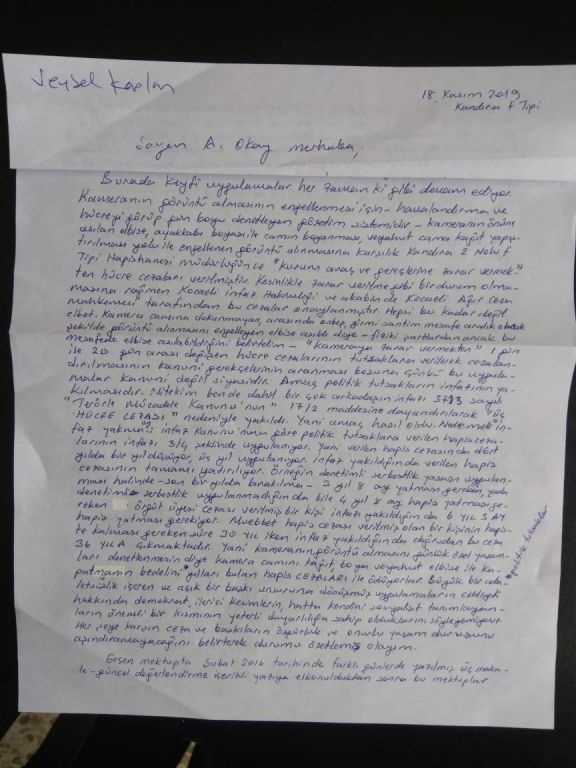 Veysel Kaplan
18, Kasım 2019
Kandıra F Tipi
Sayın A. Okay merhaba,
Burada keyfi uygulamalar her zaman ki gibi devam ediyor.
Kameranın görüntü almasının engellenmesi için - havalandırma ve
hücreyi görüp gün boyu denetleyen gözetim sistemidir - kameranın önüne
asılan elbise, ayakkabı boyası ile camın boyanması, veyahut cama kağıt yapış-
tırılması yolu ile engellenen görüntü alınmasına karşılık Kandıra 2 Nolu F
Tipi Hapishanesi müdürlüğünce "kurum araç ve gereçlerine zarar vermek"
ten hücre cezaları verilmiştir. Kesinlikle zarar verilme gibi bir durum olma-
masına rağmen Kocaeli infaz Hakimliği ve akabinde Kocaeli Ağır Ceza
Mahkemesi tarafından bu cezalar onaylanmıştır. Hepsi bu kadar değil
elbet. Kamera camına dokunmayan, arasında onbeş, yirmi santim mesafe aralık olacak
şekilde görüntü alınmasını engelleyen elbise asıldı diye - fiziki şartlardan ancak bu
mesafede elbise asılabildiğini belirtelim - "kameraya zarar vermekten" 1 gün
ile 20 gün arası değişen hücre cezalarının tutsaklara verilerek cezalan-
dırılmasının kanuni gerekçelerinin aranması boşuna çünkü bu uygula-
malar kanuni değil siyasidir. Amaç politik tutsakların infazının ya-
kılmasıdır. Nitekim bende dahil bir çok arkadaşın infazı 3713 sayılı
"Terörle Mücadele Kanunu'nun" 17/2 maddesine dayandırılarak "üç
"HÜCRE CEZASI" nedeniyle yakıldı. Yani amaç hasıl oldu. Ne demek in-
faz yakımı? infaz Kanunu'nuna göre politik tutsaklara verilen hapis ceza-
larının infazı 3/4 şeklinde uygulanıyor. Yani verilen hapis cezasında dört
yılda bir yıl düşüyor, üç yıl uygulanıyor. infaz yakıldığında verilen hapis
cezasının tamamı yatırılıyor. Örneğin denetimli serbestlik yasasın uygulan-
ması halinde - son bir yılda bırakılma - 3 yıl 8 ay yatması gereken, yada
denetimli serbestlik uygulanmadığında bile 4 yıl 8 ay hapis yatması ge-
reken örgüt üyesi cezası verilmiş bir kişi infazı yakıldığında 6 yıl 3 AY
hapis yatması gerekiyor. Müebbet hapis cezası verilmiş olan bir kişinin hapis-
te kalması gereken süre 30 yıl iken infaz yakıldığında doğrudan bu ceza
36 yıla çıkmaktadır. Yani kameranın görüntü almasını günlük özel yaşam-
ları denetlenmesin diye kamera camını kağıt, boya veyahut elbise ile ka-
patmanın bedelini *yılları bulan hapis CEZALARI ile ödüyorlar. Büyük bir ada-
letsizlik içeren ve açık bir baskı unsuruna dönüşmüş uygulamaların ciddiyeti
hakkında demokrat, ilerici kesimlerin, hatta kendini sosyalist tanımlayan-
ların önemli bir kısmının yeterli duyarlılığa sahip olduklarını söyleyemiyoruz.
Her şeye karşın ceza ve baskıların özgürlük ve onurlu yaşam duruşunu
aşındıramayacağını belirterek durumu özetlemiş olayım.
*politik tutsaklar
Geçen mektupta Şubat 2016 tarihinde farklı günlerde yazılmış üç maka-
le - güncel değerlendirme içerikli yazıya elkonulduktan sonra bu mektuplar